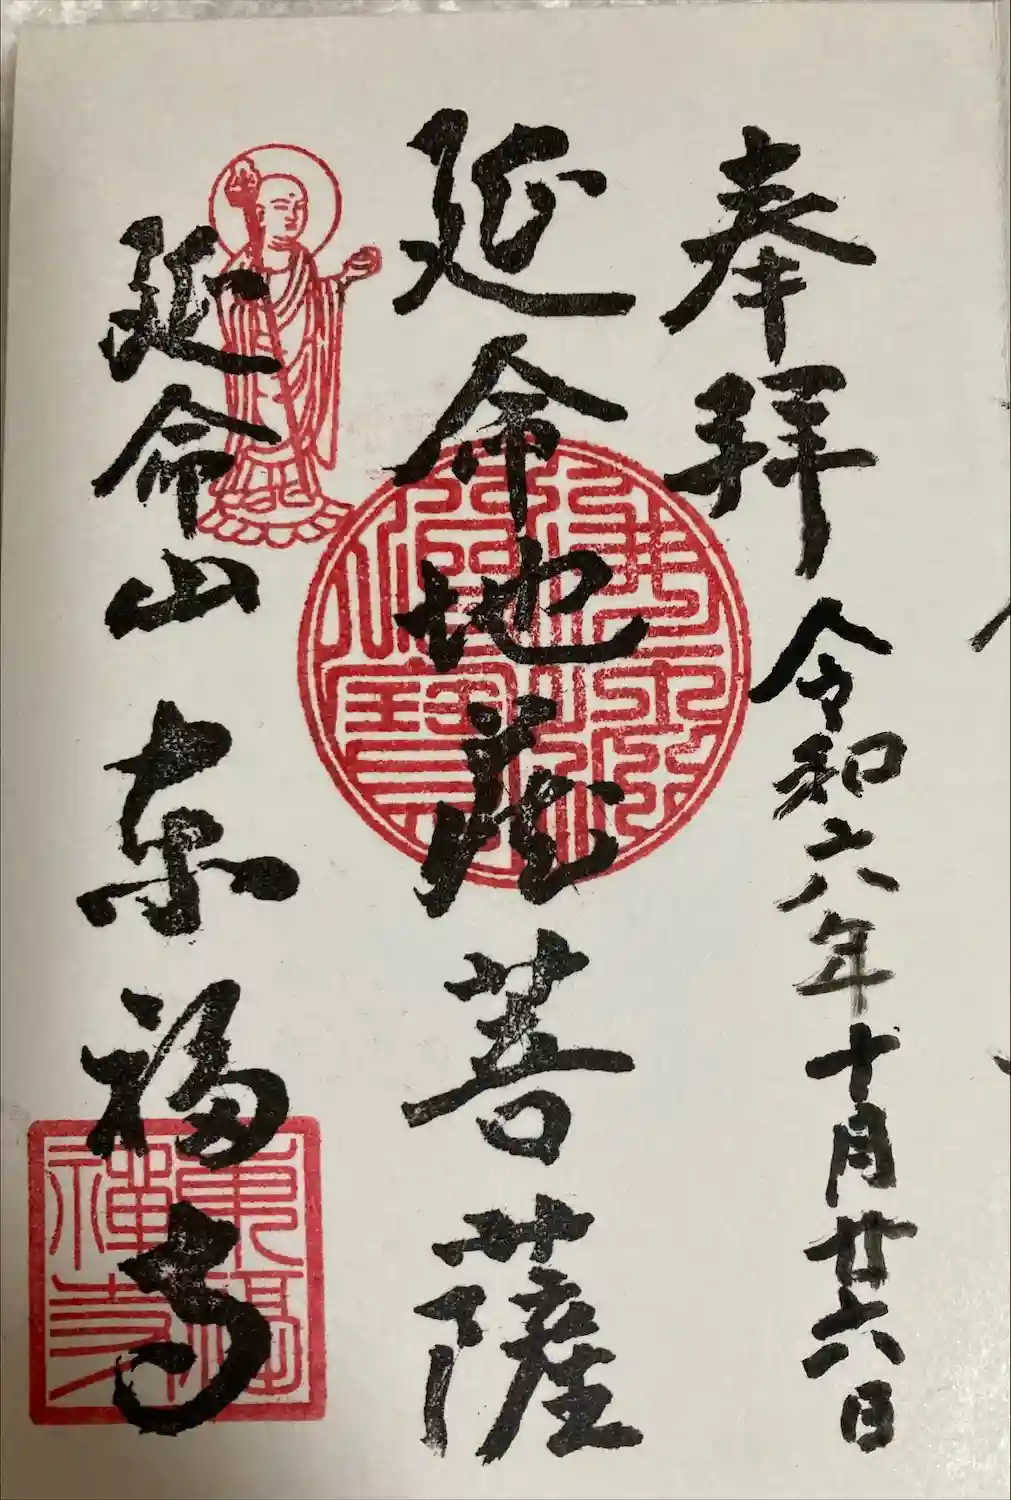 奉拝 令和六年十月廿六日
延命地蔵菩薩
延命山 東福寺
東福禅寺